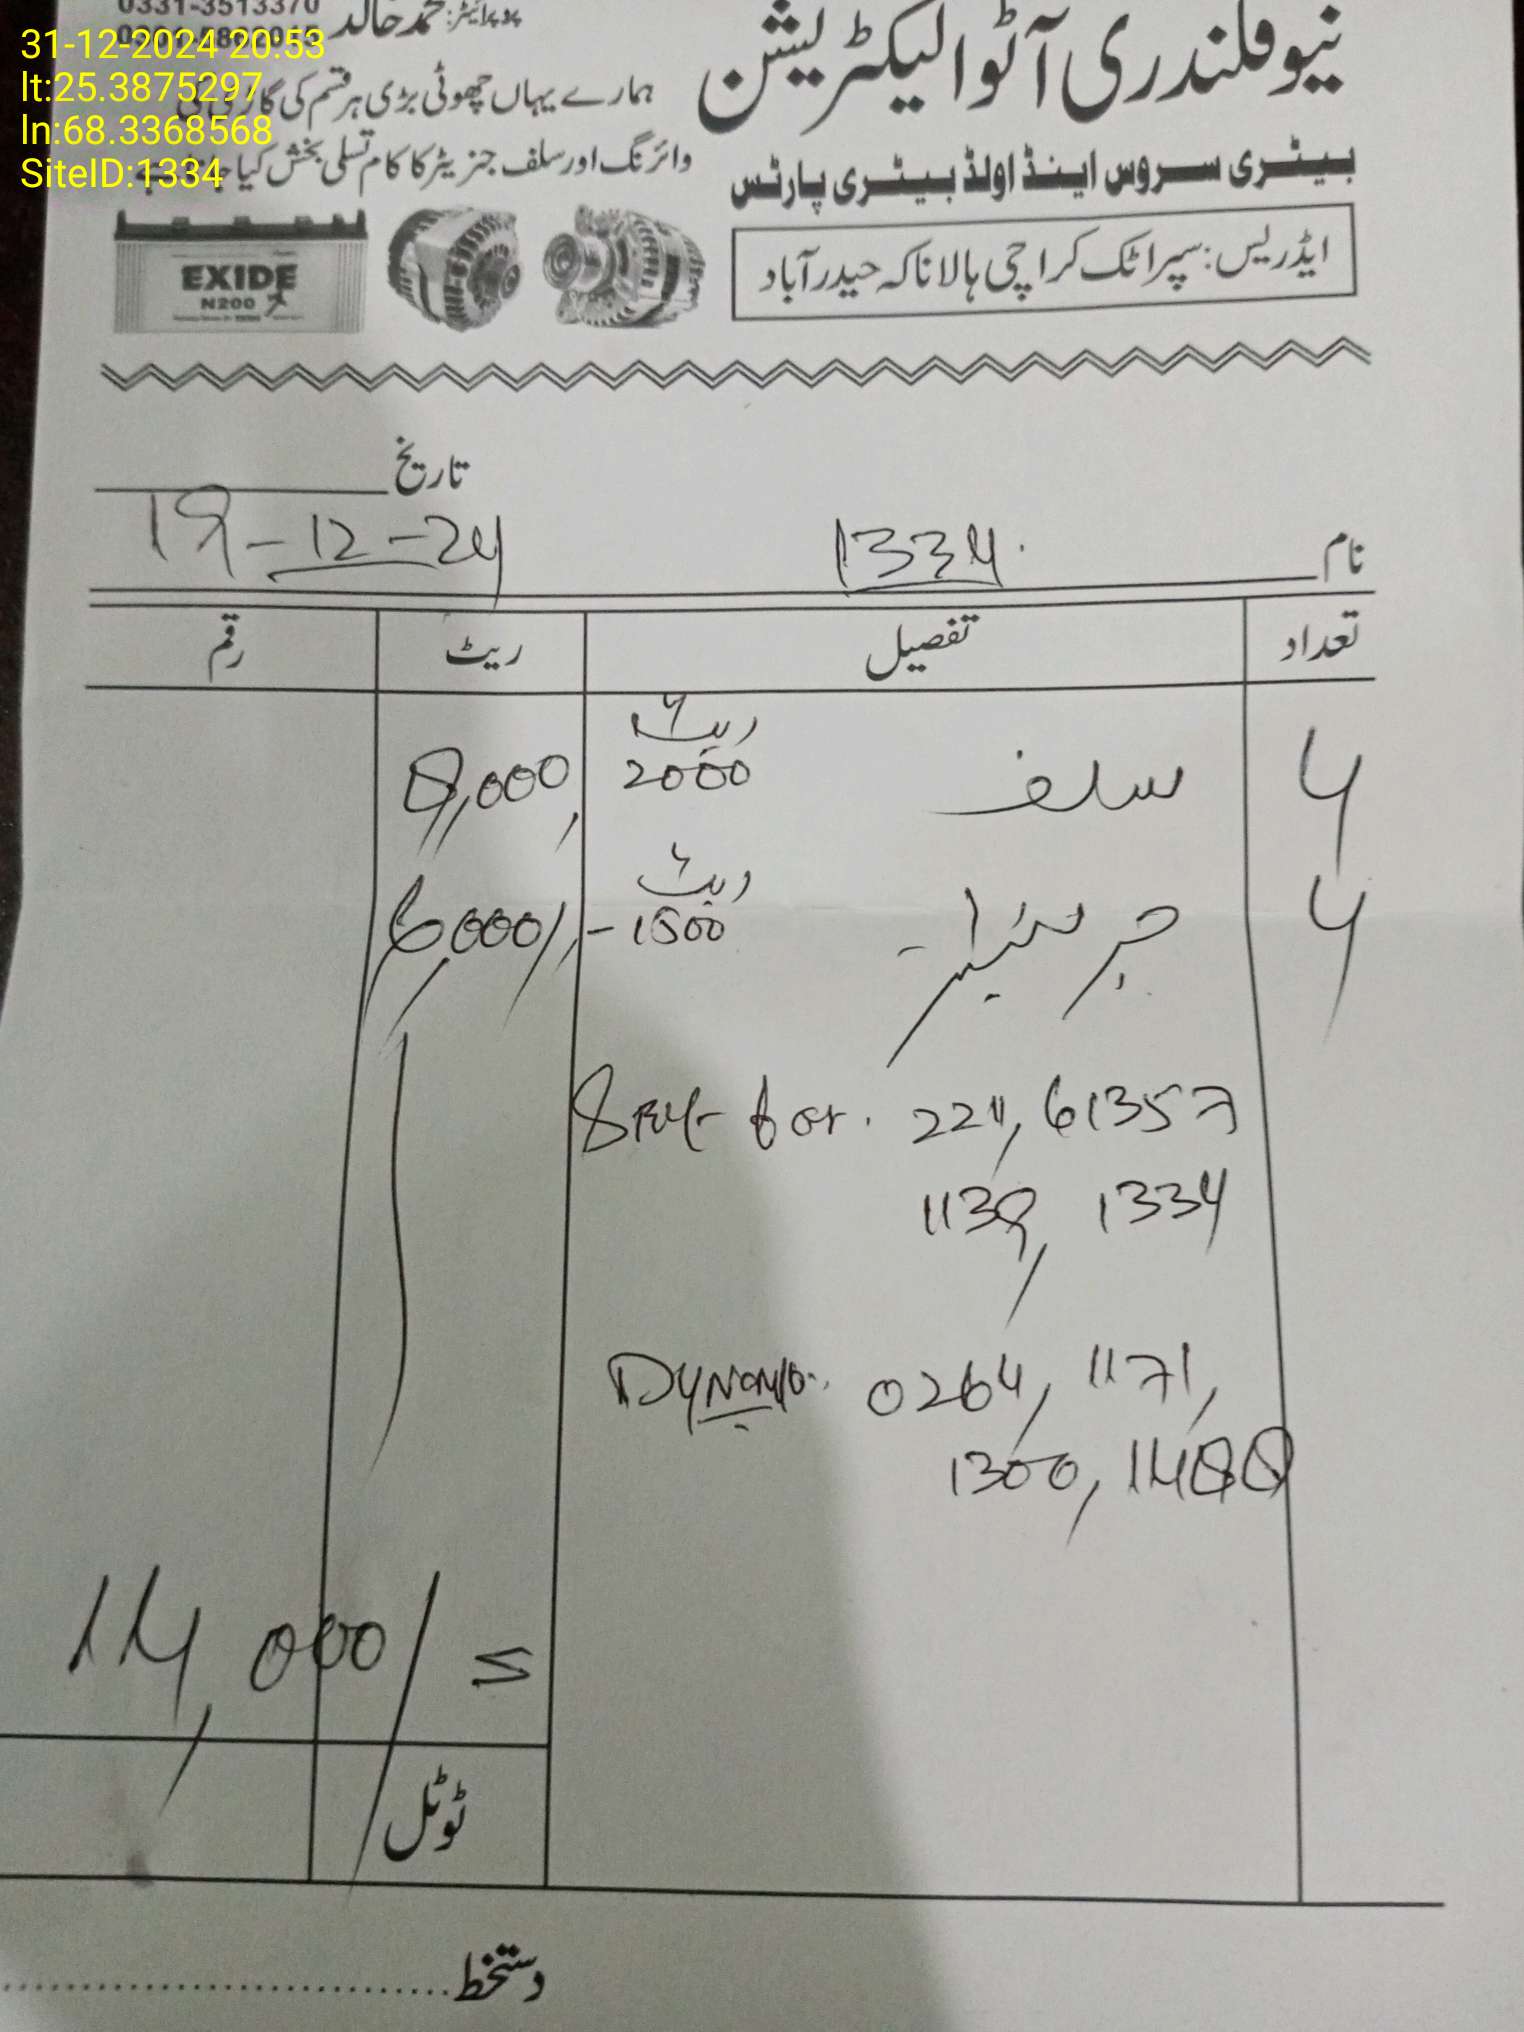 31-12-2024 20:53
lt:25.3875297
ln:68.3368568
SiteID:1334
0331-3513370
پروپرائیٹر: محمد خالد
نیو قلندری آٹو الیکٹریشن
ہمارے یہاں چھوٹی بڑی ہر قسم کی
وائرنگ اور سلف جنریٹر کا کام تسلی بخش کیا
بیٹری سروس اینڈ اولڈ بیٹری پارٹس
ایڈریس: سپر اٹک کراچی ہالا ناکہ حیدرآباد
EXIDE
N200
تاریخ 19-12-24
نام 1334
تعداد تفصیل ریٹ رقم
4 سلف ریٹ 2000 8,000
4 جرنیٹر ریٹ 1500 6,000/-
Self for. 224, 61357
1139, 1334
Dynamo. 0264, 1171,
1300, 1488
14,000/=
ٹوٹل
دستخط